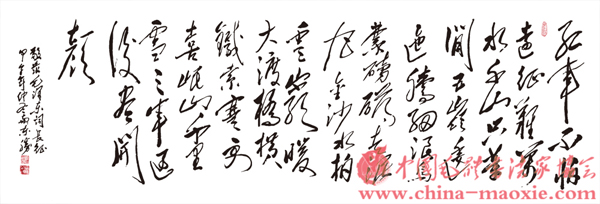 红军不怕
远征难万
水千山只等
闲五嶺逶
迤腾细浪乌
蒙磅礴走泥
丸金沙水拍
雲崖暖
大渡桥横
铁索寒更
喜岷山千里
雪三军过
後尽開
颜
敬录毛泽东词长征
甲午年仲冬
中国毛体书法家协会
www.china-maoxie.com